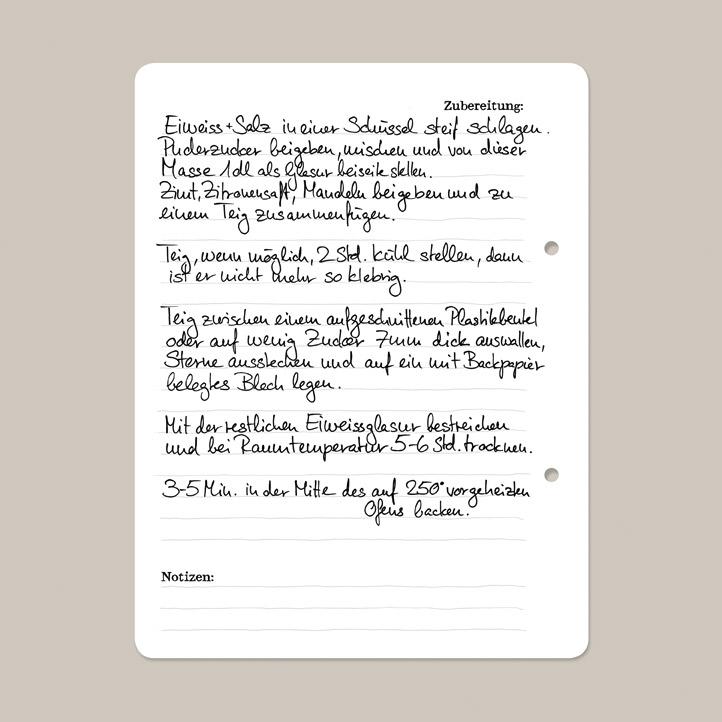 Zubereitung:
Eiweiss + Salz in einer Schüssel steif schlagen.
Puderzucker beigeben, mischen und von dieser
Masse 1dl als Glasur beiseite stellen.
Zimt, Zitronensaft, Mandeln beigeben und zu
einem Teig zusammenfügen.
Teig, wenn möglich, 2 Std. kühl stellen, dann
ist er nicht mehr so klebrig.
Teig zwischen einem aufgeschnittenen Plastikbeutel
oder auf wenig Zucker 7mm dick auswallen,
Sterne ausstechen und auf ein mit Backpapier
belegtes Blech legen.
Mit der restlichen Eiweissglasur bestreichen
und bei Raumtemperatur 5-6 Std. trocknen.
3-5 Min. in der Mitte des auf 250° vorgeheizten
Ofens backen.
Notizen: